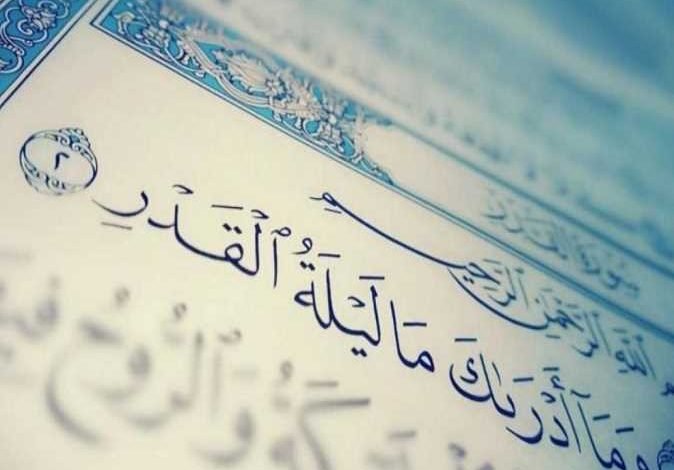 سورة القدر
اللَّهِ الرَّحْمَٰنِ الرَّحِيمِ
وَمَآ أَدْرَىٰكَ مَا لَيْلَةُ ٱلْقَدْرِ ٢
كَةُ وَٱلرُّوحُ فِي